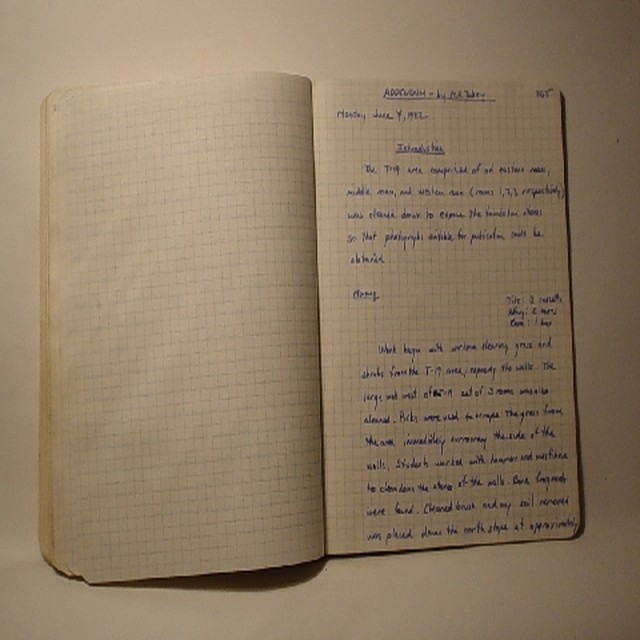 ADDENDUM - by M.A. 365
Monday June 7, 1982
Introduction
The T-19 area comprised of an eastern room,
middle room, and western room (rooms 1,2,3 respectively)
was cleaned down to expose the foundation stones
so that photographs suitable for publication could be
obtained.
: 2
: 2
: 1
Work began with workmen clearing grass and
shrubs from the T-19 area, exposing the walls. The
large west of T-19 set of 3 rooms was also
cleaned. Picks were used to scrape the grass from
the area immediately surrounding the side of the
walls. Students worked with hammer and
to clean down the stones of the walls. Bone fragments
were found. Cleaned brush and any soil removed
was placed down the north slope at approximately